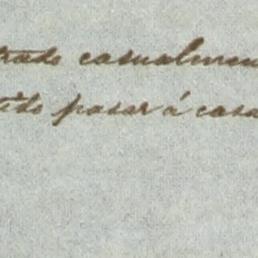 trado casualmen
tido pasar á casa